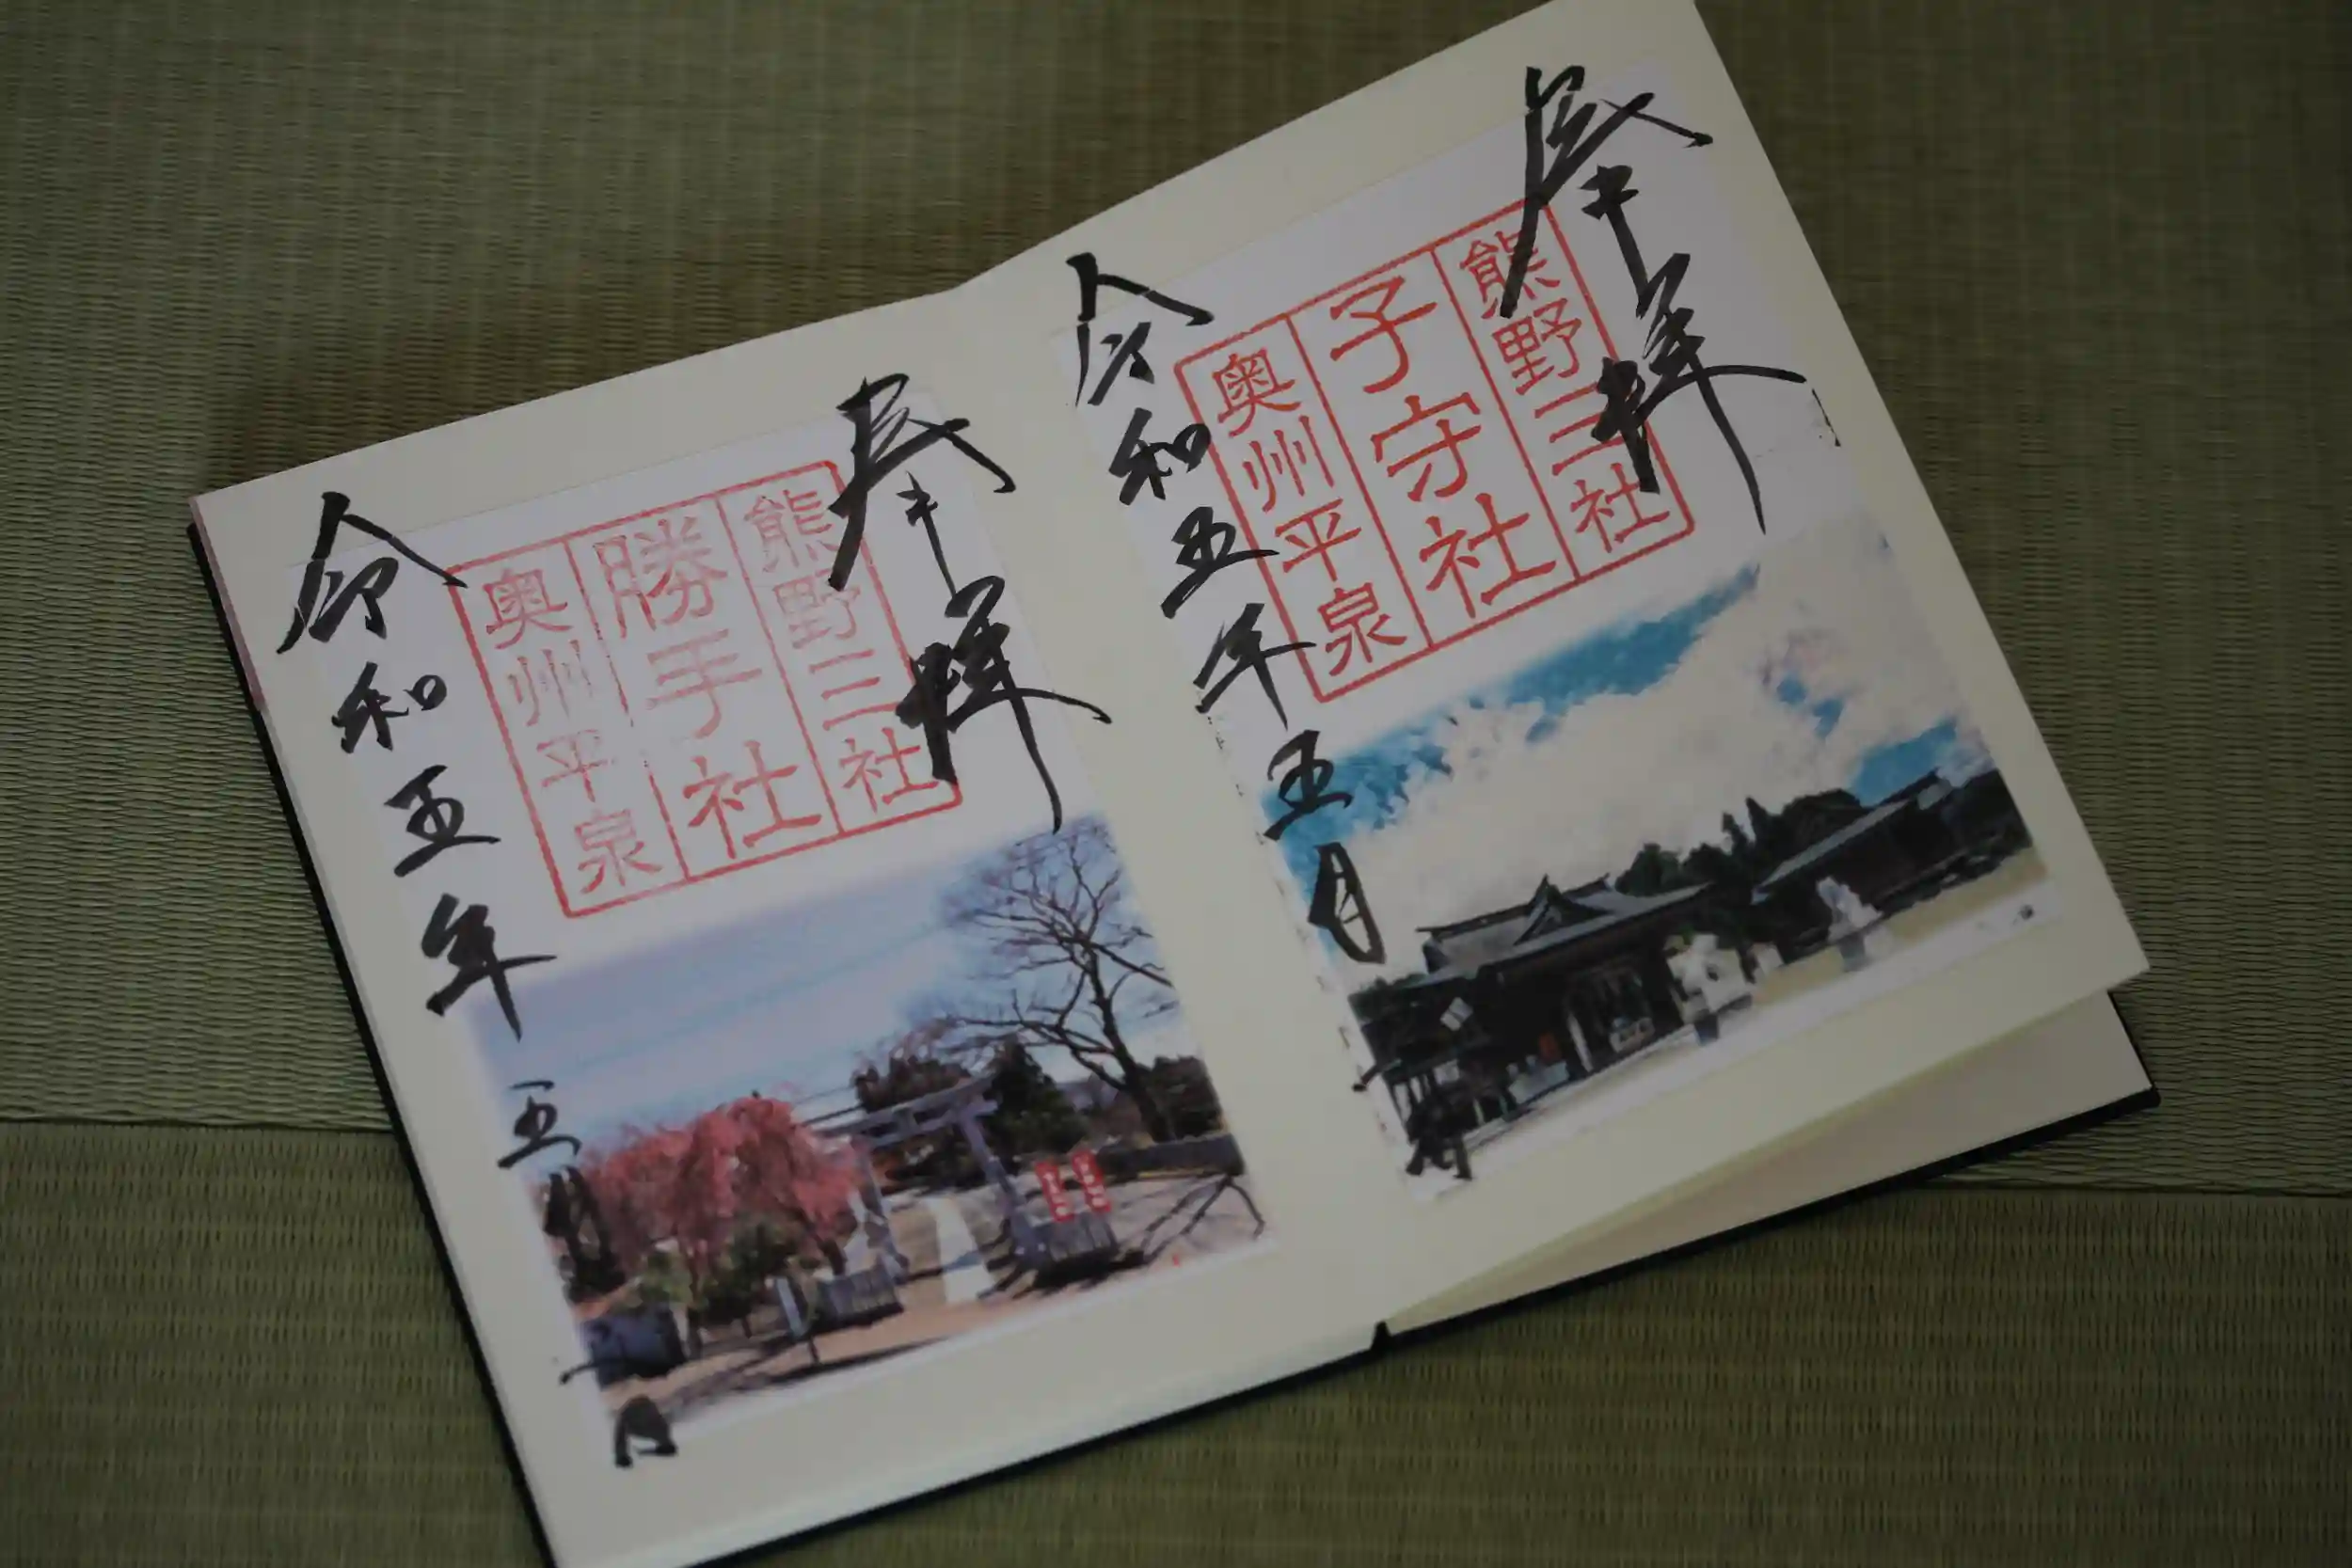 奉拝
熊野三社
子守社
奥州平泉
令和五年五月一日
奉拝
熊野三社
勝手社
奥州平泉
令和五年五月一日